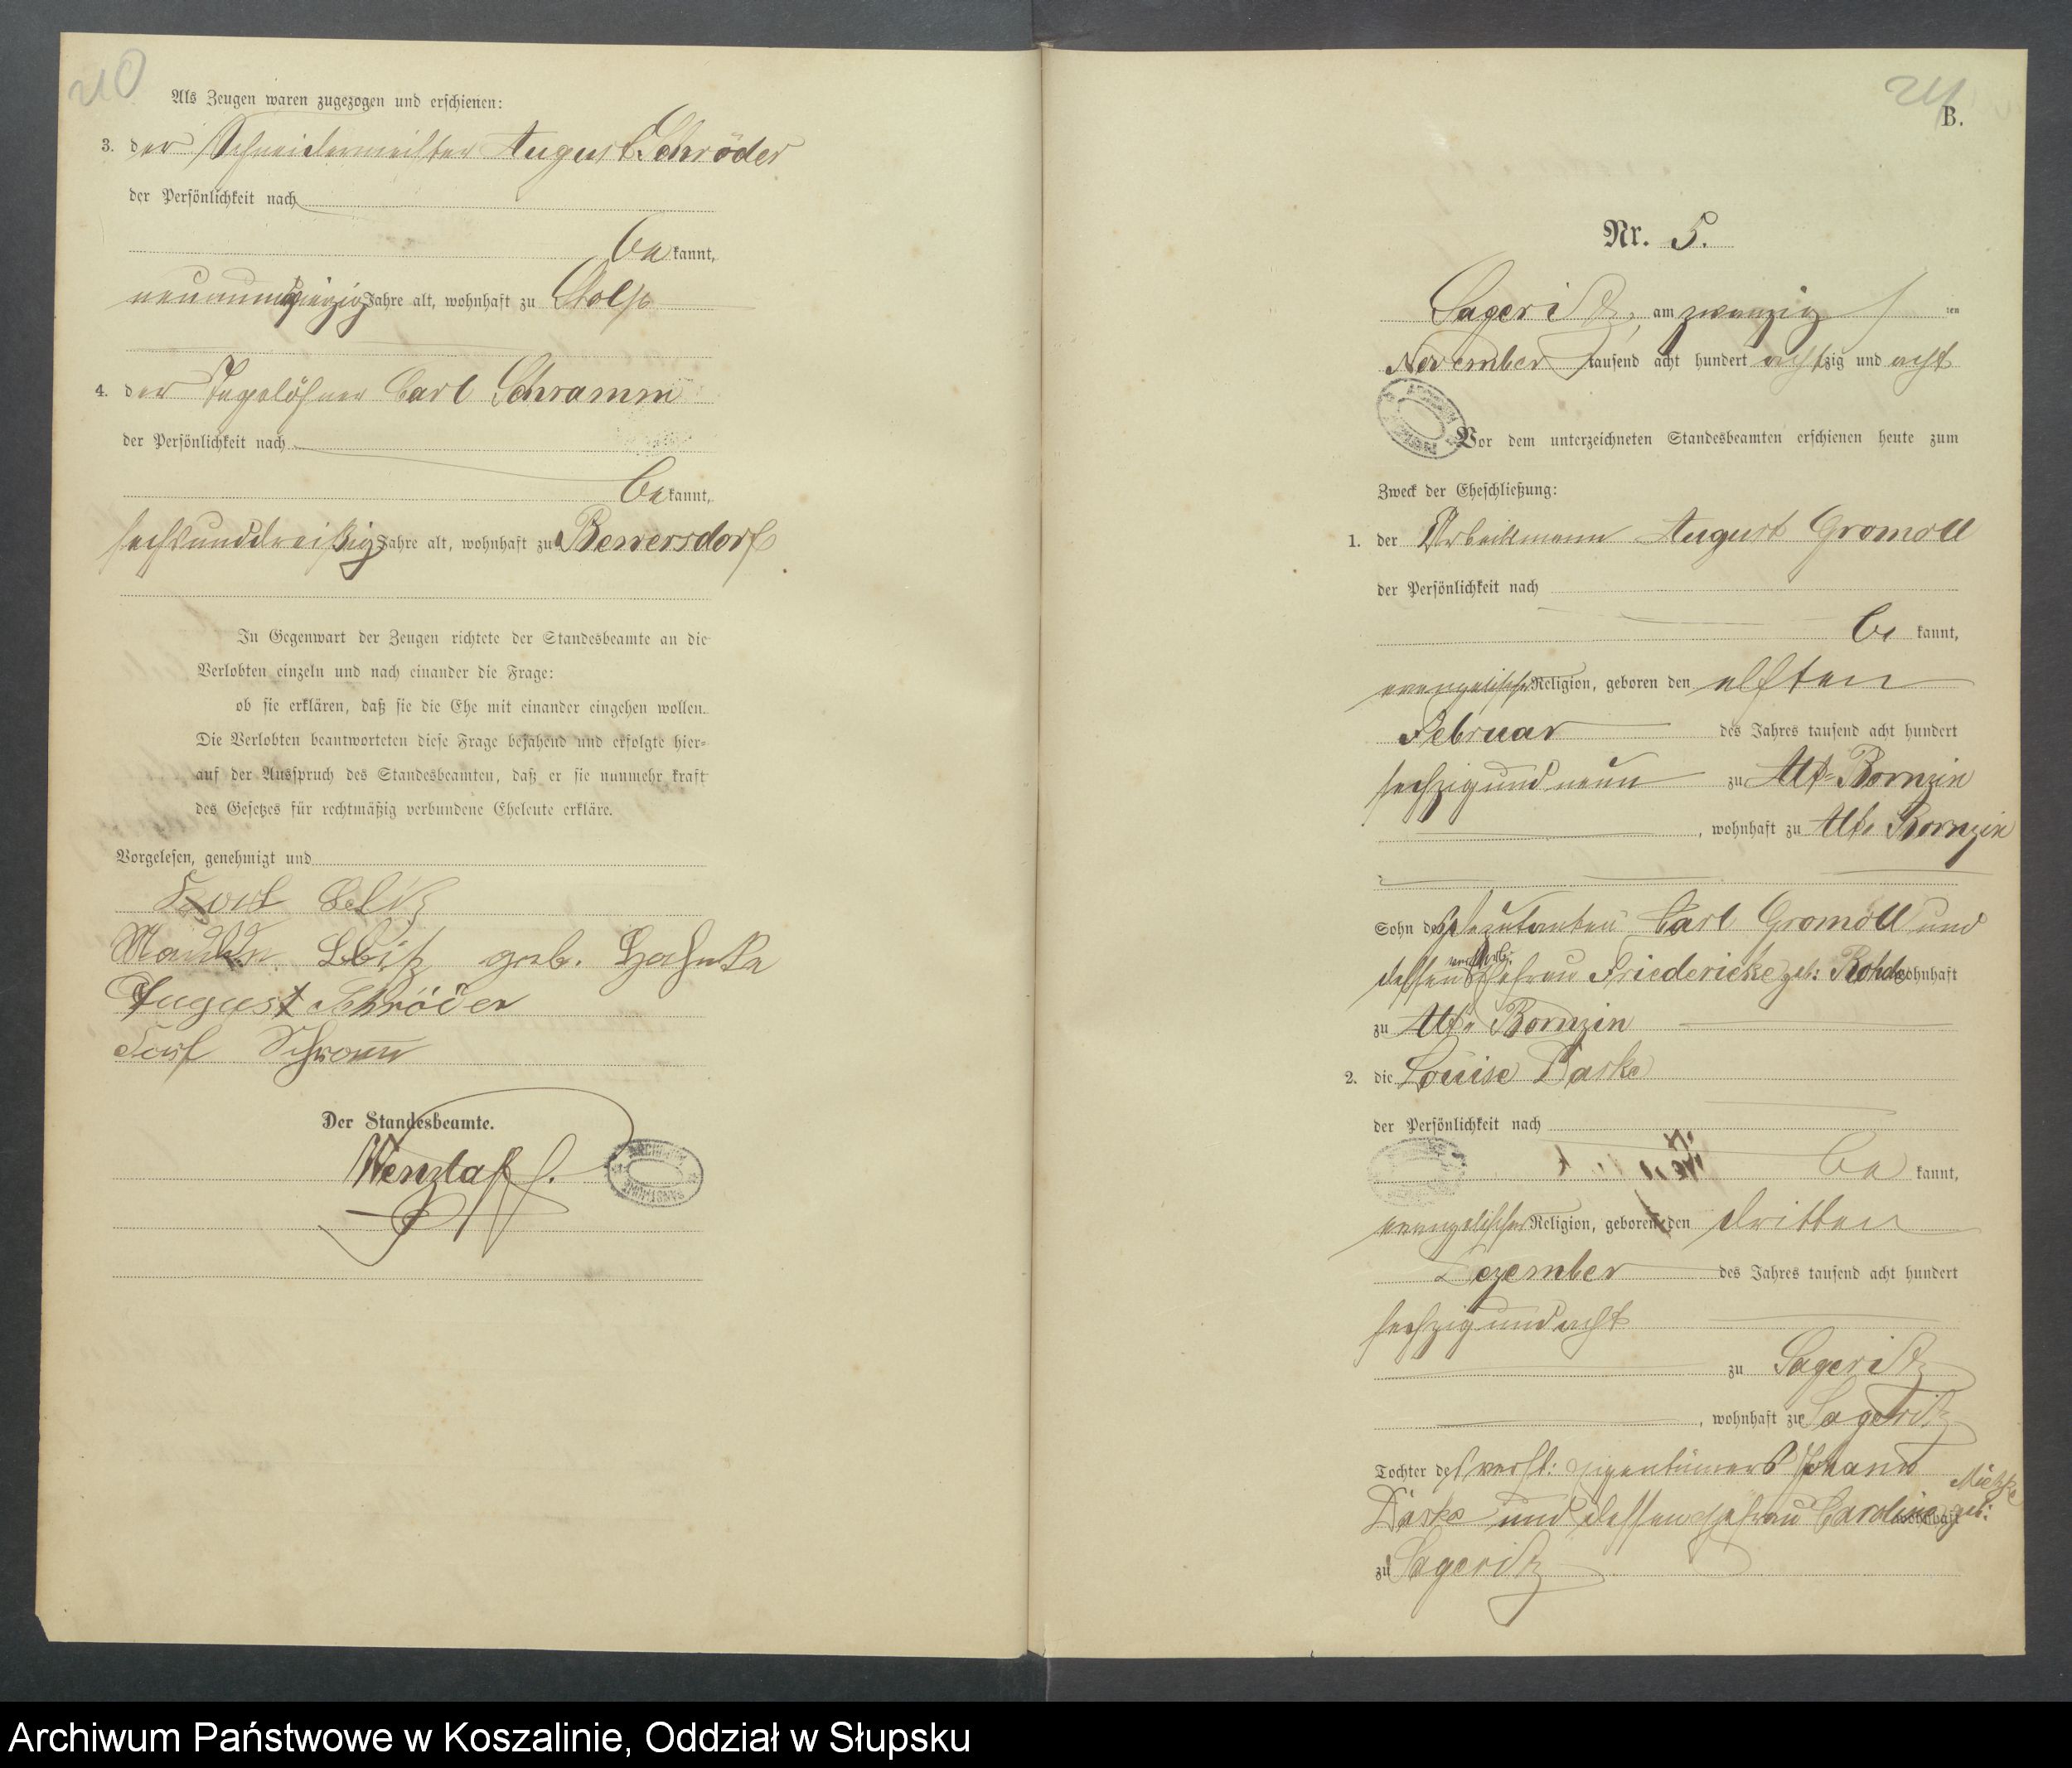 40
Als Zeugen waren zugezogen und erschienen:
3. der Schneidermeister August Schröder
der Persönlichkeit nach
be kannt,
neunundvierzig Jahre alt, wohnhaft zu Stolp
4. der Tagelöhner Carl Schramm
der Persönlichkeit nach
be kannt,
sechsunddreißig Jahre alt, wohnhaft zu Bewersdorf
In Gegenwart der Zeugen richtete der Standesbeamte an die
Verlobten einzeln und nach einander die Frage:
ob sie erklären, daß sie die Ehe mit einander eingehen wollen.
Die Verlobten beantworteten diese Frage bejahend und erfolgte hier-
auf der Ausspruch des Standesbeamten, daß er sie nunmehr kraft
des Gesetzes für rechtmäßig verbundene Eheleute erkläre.
Vorgelesen, genehmigt und
geb.
August Schröder
Der Standesbeamte.
Wenzlaff.
B.
Nr. 5.
Sageritz, am zwanzig ten
November tausend acht hundert achtzig und acht
Vor dem unterzeichneten Standesbeamten erschienen heute zum
Zweck der Eheschließung:
1. der Arbeitsmann August Gromoll
der Persönlichkeit nach
be kannt,
evangelischer Religion, geboren den elften
Februar des Jahres tausend acht hundert
sechzig und neun zu Alt-Bornzin
, wohnhaft zu Alt-Bornzin
Sohn des Deputanten Carl Gromoll und
dessen verstorb. Ehefrau Friedericke geb: Rohde wohnhaft
zu Alt-Bornzin
2. die Louise Daske
der Persönlichkeit nach
be kannt,
evangelischer Religion, geboren den dritten
Dezember des Jahres tausend acht hundert
sechzig und acht
zu Sageritz
, wohnhaft zu Sageritz
Tochter des verst: Eigentümers Johann
Daske und dessen Ehefrau Caroline geb: Mietzke wohnhaft
zu Sageritz
Archiwum Państwowe w Koszalinie, Oddział w Słupsku